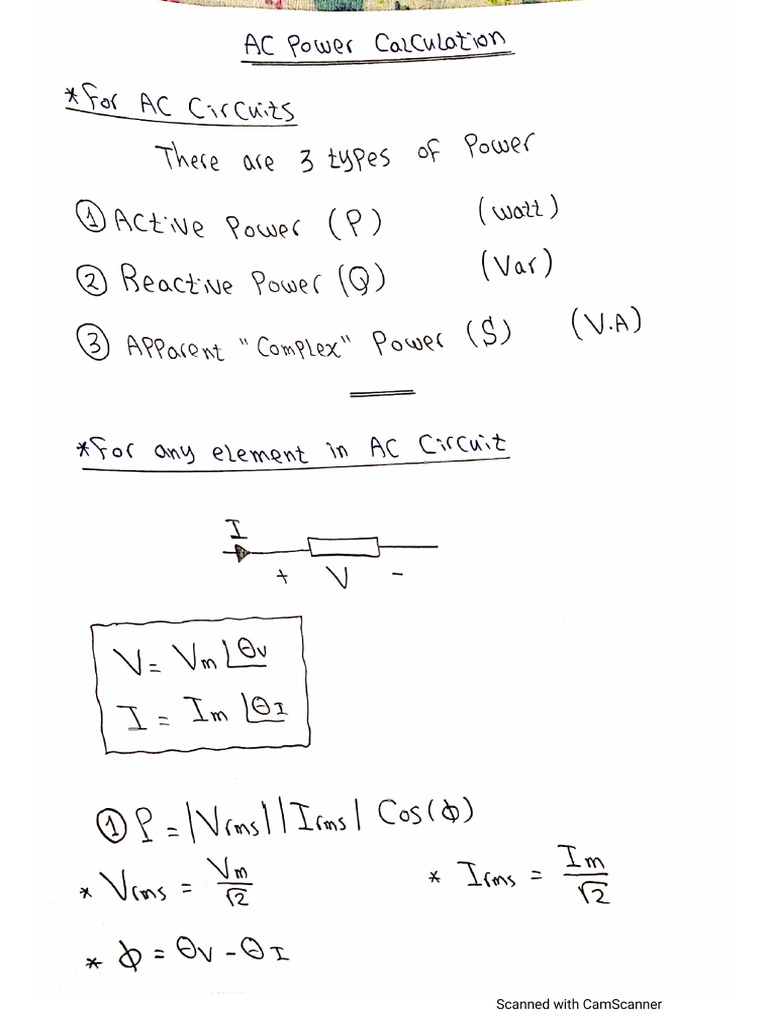 AC Power Calculation
*For AC Circuits
There are 3 types of Power
① Active Power (P) (watt)
② Reactive Power (Q) (Var)
③ Apparent "Complex" Power (S) (V.A)
*For any element in AC Circuit
I
+ V -
V = Vm∠θv
I = Im∠θI
① P = |Vrms||Irms| Cos(ϕ)
* Vrms = Vm/√2 * Irms = Im/√2
* ϕ = θv - θI
Scanned with CamScanner